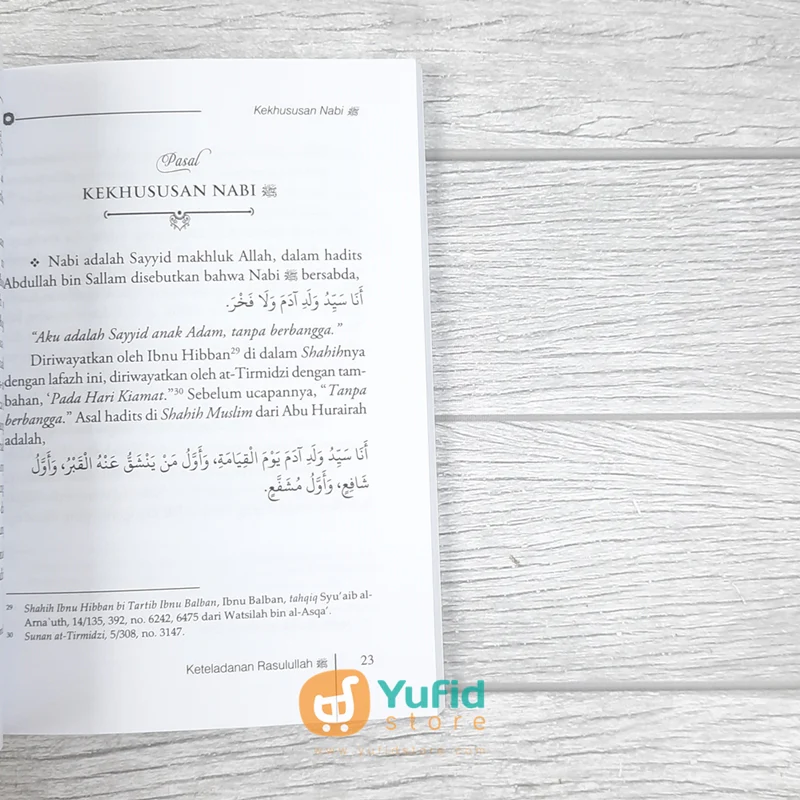 Kekhususan Nabi ﷺ
Pasal
KEKHUSUSAN NABI ﷺ
❖ Nabi adalah Sayyid makhluk Allah, dalam hadits
Abdullah bin Sallam disebutkan bahwa Nabi ﷺ bersabda,
أَنَا سَيِّدُ وَلَدِ آدَمَ وَلَا فَخْرَ.
“Aku adalah Sayyid anak Adam, tanpa berbangga.”
Diriwayatkan oleh Ibnu Hibban²⁹ di dalam Shahihnya
dengan lafazh ini, diriwayatkan oleh at-Tirmidzi dengan tam-
bahan, ‘Pada Hari Kiamat.”³⁰ Sebelum ucapannya, “Tanpa
berbangga.” Asal hadits di Shahih Muslim dari Abu Hurairah
adalah,
أَنَا سَيِّدُ وَلَدِ آدَمَ يَوْمَ الْقِيَامَةِ، وَأَوَّلُ مَنْ يَنْشَقُّ عَنْهُ الْقَبْرُ، وَأَوَّلُ
شَافِعٍ، وَأَوَّلُ مُشَفَّعٍ.
29 Shahih Ibnu Hibban bi Tartib Ibnu Balban, Ibnu Balban, tahqiq Syu’aib al-
Arna`uth, 14/135, 392, no. 6242, 6475 dari Watsilah bin al-Asqa’.
30 Sunan at-Tirmidzi, 5/308, no. 3147.
Keteladanan Rasulullah ﷺ 23
Yufid
store